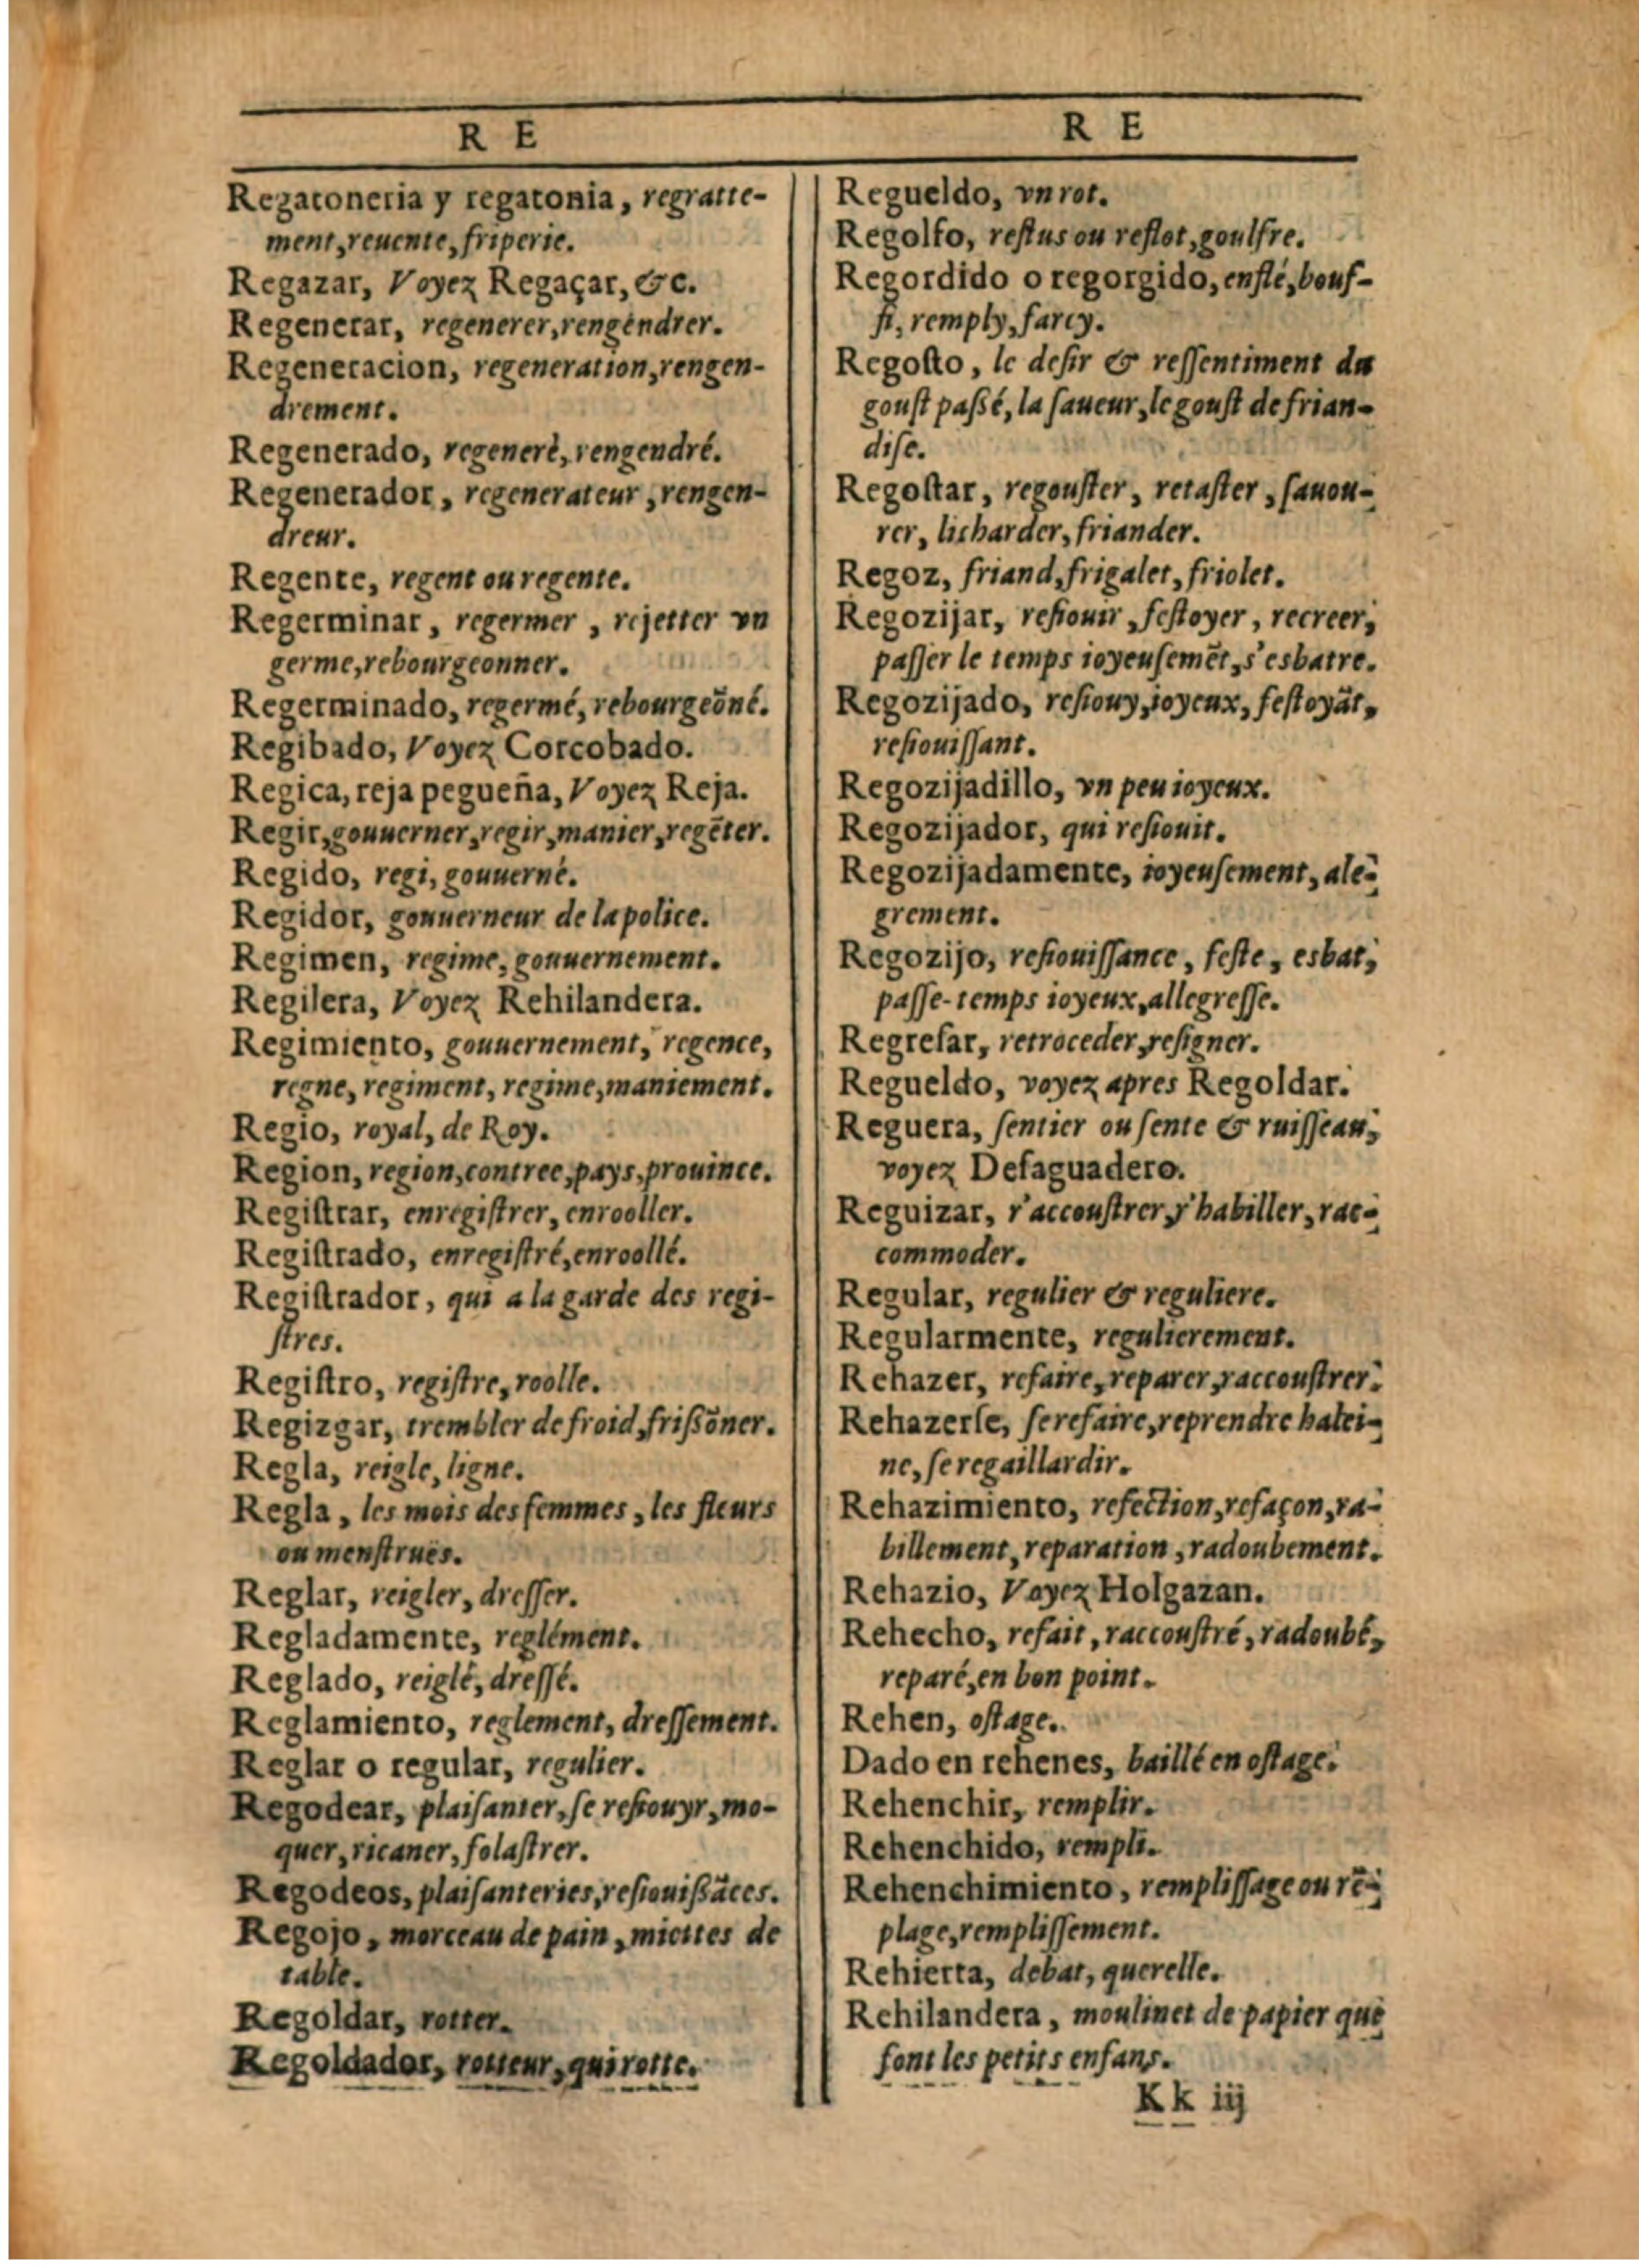 R E
Regatoneria y regatonia, regratte-
ment, reuente, friperie.
Regazar, Voyez Regaçar, &c.
Regenerar, regenerer, rengendrer.
Regeneracion, regeneration, rengen-
drement.
Regenerado, regeneré, rengendré.
Regenerador, regenerateur, rengen-
dreur.
Regente, regent ou regente.
Regerminar, regermer, rejetter vn
germe, rebourgeonner.
Regerminado, regermé, rebourgeõné.
Regibado, Voyez Corcobado.
Regica, reja pegueña, Voyez Reja.
Regir, gouuerner, regir, manier, regẽter.
Regido, regi, gouuerné.
Regidor, gouuerneur de la police.
Regimen, regime, gouuernement.
Regilera, Voyez Rehilandera.
Regimiento, gouuernement, regence,
regne, regiment, regime, maniement.
Regio, royal, de Roy.
Region, region, contree, pays, prouince.
Regiſtrar, enregiſtrer, enrooller.
Regiſtrado, enregiſtré, enroollé.
Regiſtrador, qui a la garde des regi-
ſtres.
Regiſtro, regiſtre, roolle.
Regizgar, trembler de froid, frißõner.
Regla, reigle, ligne.
Regla, les mois des femmes, les fleurs
ou menſtrues.
Reglar, reigler, dreſſer.
Regladamente, reglément.
Reglado, reiglé, dreſſé.
Reglamiento, reglement, dreſſement.
Reglar o regular, regulier.
Regodear, plaiſanter, ſe reſiouyr, mo-
quer, ricaner, folaſtrer.
Regodeos, plaiſanteries, reſiouißãces.
Regojo, morceau de pain, miettes de
table.
Regoldar, rotter.
Regoldador, rotteur, qui rotte.
R E
Regueldo, vn rot.
Regolfo, reflus ou reflot, goulfre.
Regordido o regorgido, enflé, bouf-
fi, remply, farcy.
Regoſto, le deſir & reſſentiment du
gouſt paßé, la ſaueur, le gouſt de frian-
diſe.
Regoſtar, regouſter, retaſter, ſauou-
rer, licharder, friander.
Regoz, friand, frigalet, friolet.
Regozijar, reſiouir, feſtoyer, recreer,
paſſer le temps ioyeuſemẽt, s'esbatre.
Regozijado, reſiouy, ioyeux, feſtoyãt,
reſiouiſſant.
Regozijadillo, vn peu ioyeux.
Regozijador, qui reſiouit.
Regozijadamente, ioyeuſement, ale-
grement.
Regozijo, reſiouiſſance, feſte, esbat,
paſſe-temps ioyeux, allegreſſe.
Regreſar, retroceder, reſigner.
Regueldo, voyez apres Regoldar.
Reguera, ſentier ou ſente & ruiſſeau,
voyez Deſaguadero.
Reguizar, r'accouſtrer, r'habiller, rac-
commoder.
Regular, regulier & reguliere.
Regularmente, regulierement.
Rehazer, refaire, reparer, raccouſtrer.
Rehazerſe, ſe refaire, reprendre halei-
ne, ſe regaillardir.
Rehazimiento, refection, refaçon, ra-
billement, reparation, radoubement.
Rehazio, Voyez Holgazan.
Rehecho, refait, raccouſtré, radoubé,
reparé, en bon point.
Rehen, oſtage.
Dado en rehenes, baillé en oſtage.
Rehenchir, remplir.
Rehenchido, rempli.
Rehenchimiento, rempliſſage ou rẽ-
plage, rempliſſement.
Rehierta, debat, querelle.
Rehilandera, moulinet de papier que
font les petits enfans.
Kk iij